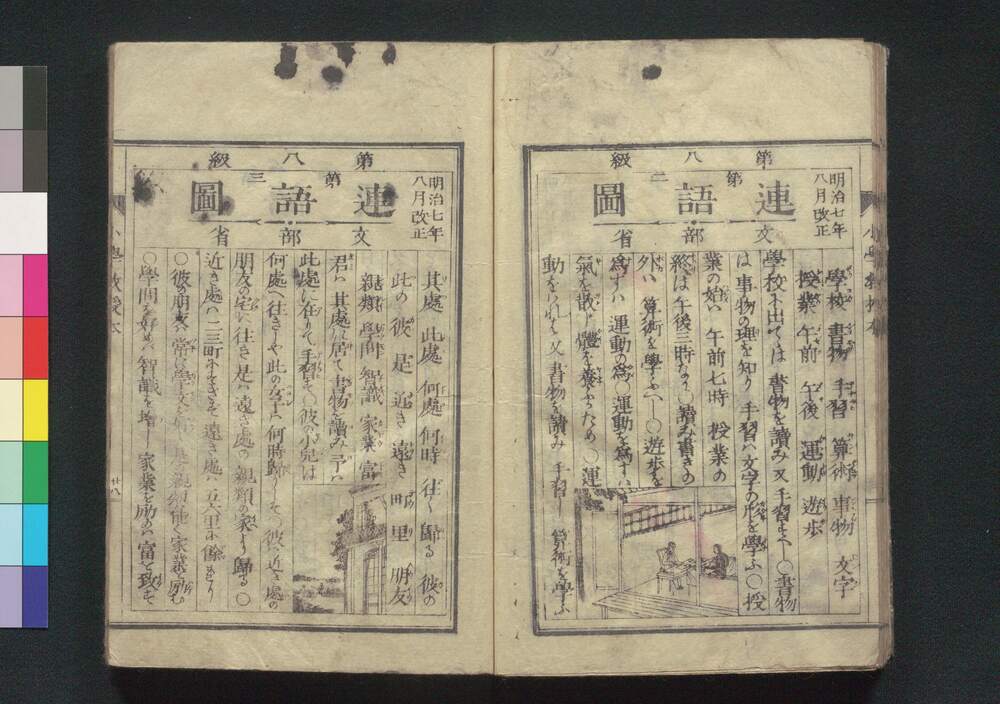 第八級
第二
連語圖
明治七年
八月改正
文部省
學校 書物 手習 算術 事物 文字
授業 午前 午後 運動 遊歩
學校に出ては 書物を讀み 又 手習をすべし〇書物
は 事物の理を知り 手習ハ 文字の形を學ふ〇授
業の始ハ 午前七時 授業の
終は 午後三時なり〇讀み書きの
外ハ 算術を學ふべし〇遊歩を
爲すハ 運動の爲 運動を爲すハ
氣を散し 體を養ふため〇運
動を 又 書物を讀み 手習し 算術を學ふ
第八級
第三
連語圖
明治七年
八月改正
文部省
其處 此處 何處 何時 往く 歸る 彼の
此の 彼 是 近き 遠き 町 里 朋友
親類 學問 智識 家業 富
君ハ 其處に居て 書物を讀み 予ハ
此處に在りて 手習を 〇彼の小兒は
何處へ往きしや 此の 何時歸りしぞ〇彼ハ 近き處の
朋友の宅に往き 是ハ 遠き處の 親類の家より 歸る〇
近き處ハ 二三町にすぎず 遠き處ハ 五六里に餘れり
〇彼の朋友ハ 常に學文を 家業を勵む
〇學問を好めハ 智識を増し 家業を勵めハ 富を致す
廿八